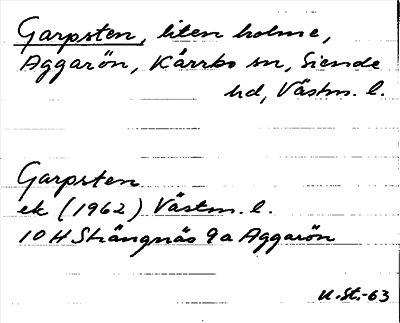 Garpsten, liten holme,
Aggarön, Kärrbo sn, Siende
hd, Västm. l.
Garpsten
ek (1962) Västm. l.
10 H Strängnäs 9a Aggarön
U.St.-63